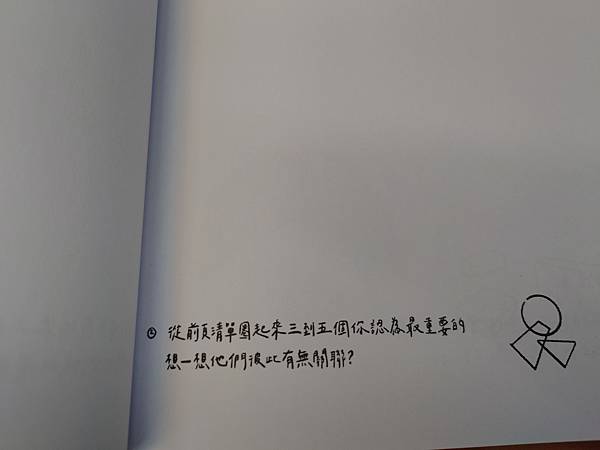 從前頁清單圈起來三到五個你認為最重要的
想一想他們彼此有無關聯?